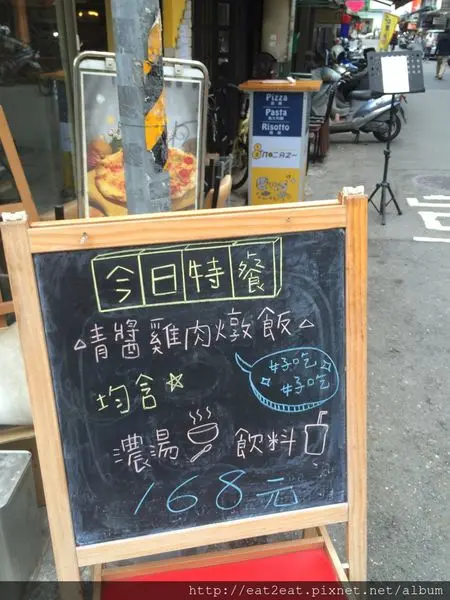 Pizza
Pasta
Risotto
8月の二分之一
今日特餐
青醬雞肉燉飯
#好吃
#好吃
均含
濃湯 飲料
168元
http://eat2eat.pixnet.net/album